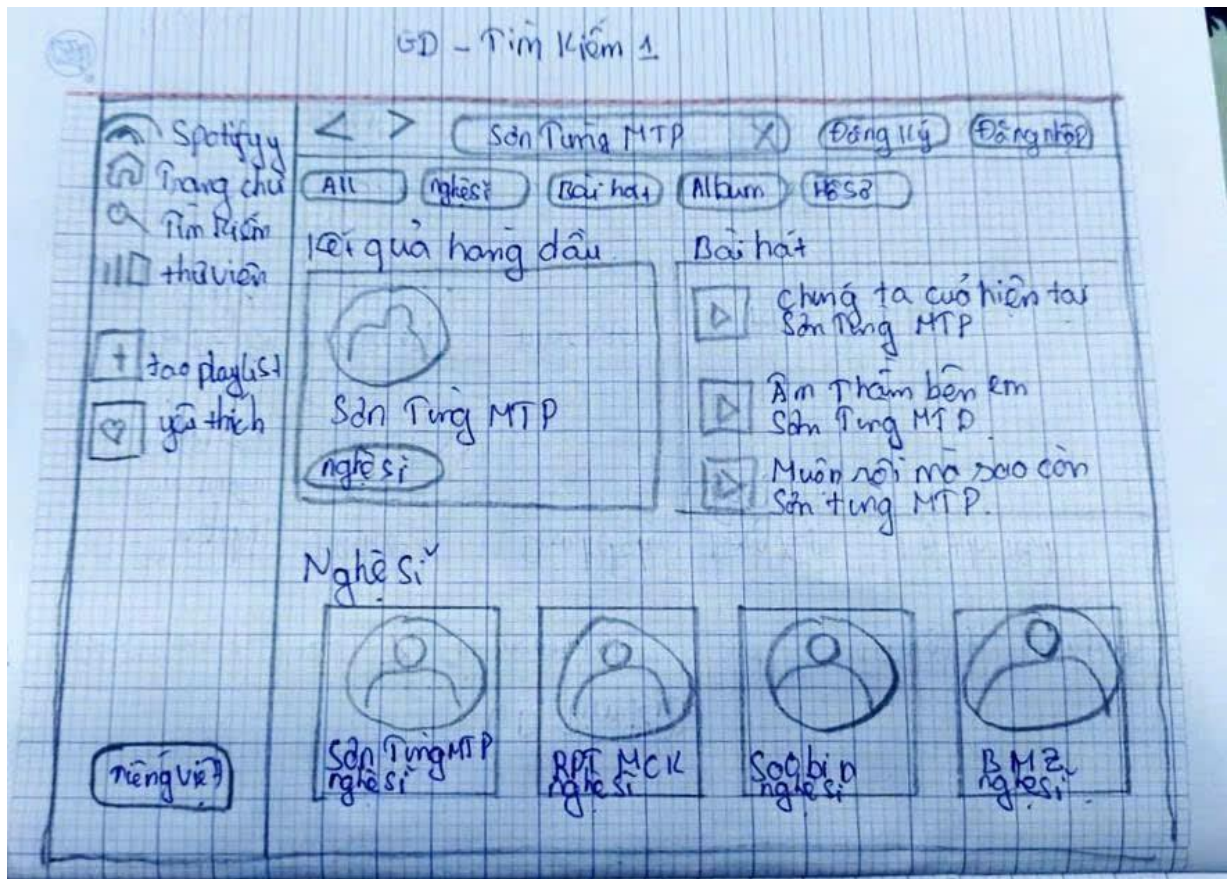 GD - Tìm Kiếm 1
Spotifyy
Trang chủ
Tìm kiếm
thư viện
tạo playlist
yêu thích
Tiếng Việt
< >
Sơn Tùng MTP X
Đăng ký
Đăng nhập
All
nghệ sĩ
Bài hát
Album
Hồ Sơ
Kết quả hàng đầu
Sơn Tùng MTP
nghệ sĩ
Bài hát
chúng ta cuả hiện tại
Sơn Tùng MTP
Âm Thầm bên em
Sơn Tùng MTP
Muộn rồi mà sao còn
Sơn tùng MTP.
Nghệ Sĩ
Sơn Tùng MTP
nghệ sĩ
RPT MCK
nghệ sĩ
Soobin
nghệ sĩ
BMZ
nghệ sĩ